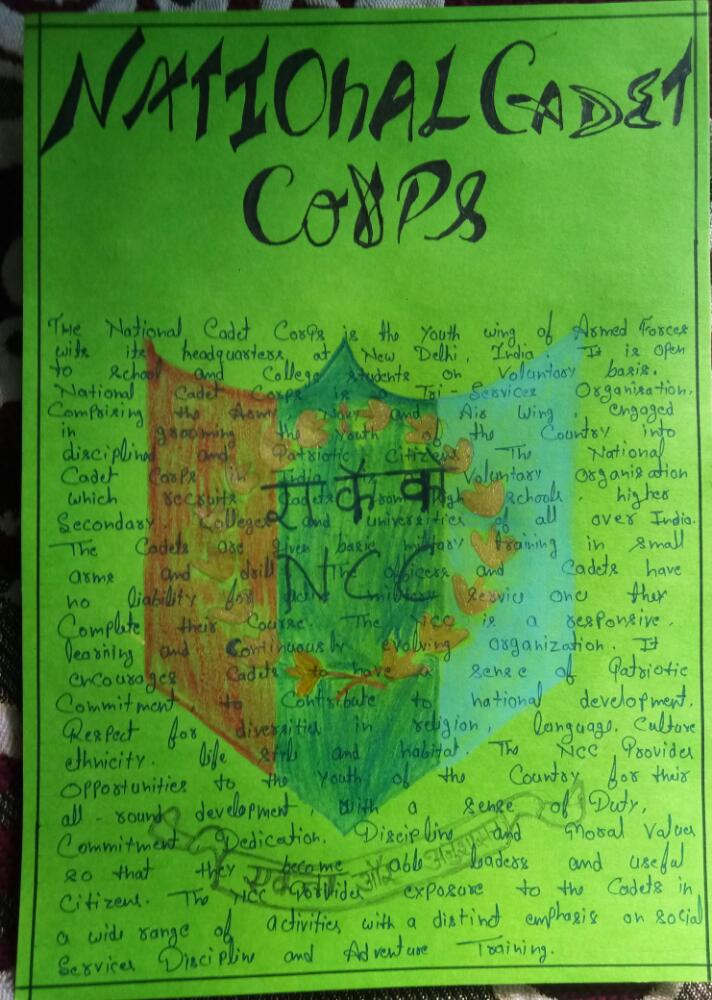 NATIONAL CADET
CORPS
The National Cadet Corps is the Youth wing of Armed Forces
with its headquarters, at New Delhi, India. It is open
to school and College students on Voluntary basis.
National Cadet Corps is a Tri-Services Organisation,
Comprising the Army, Navy and Air Wing, engaged
in grooming the Youth of the Country into
disciplined and Patriotic Citizens The National
Cadet Corps in India is Voluntary Organisation
which recruits Cadets from high schools, higher
Secondary. Colleges and universities of all over India.
The Cadets are given basic military training in small
arms and drill The officers and Cadets have
no liability for active military service once they
Complete their Course. The NCC is a responsive,
learning and Continuously evolving organization. It
encourages Cadets to have a sense of Patriotic
Commitment, to Contribute to national development.
Respect for diversities in religion, language, Culture
ethnicity. life style and habitat. The NCC Provides
Opportunities to the Youth of the Country for their
all-round development, with a sense of Duty,
Commitment Dedication. Discipline and Moral Values
so that they become able leaders and useful
Citizens. The NCC Provides exposure to the Cadets in
a wide range of activities with a distinct emphasis on social
Services Discipline and Adventure Training.
रा कै को
NCC
एकता और अनुशासन